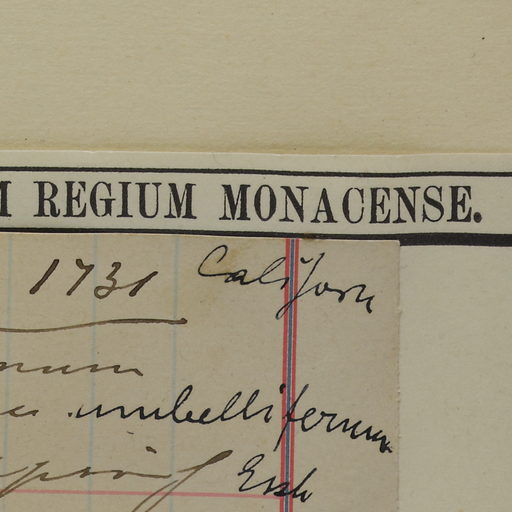 M REGIUM MONACENSE.
1731 Californ
num
umbelliferum
Esch